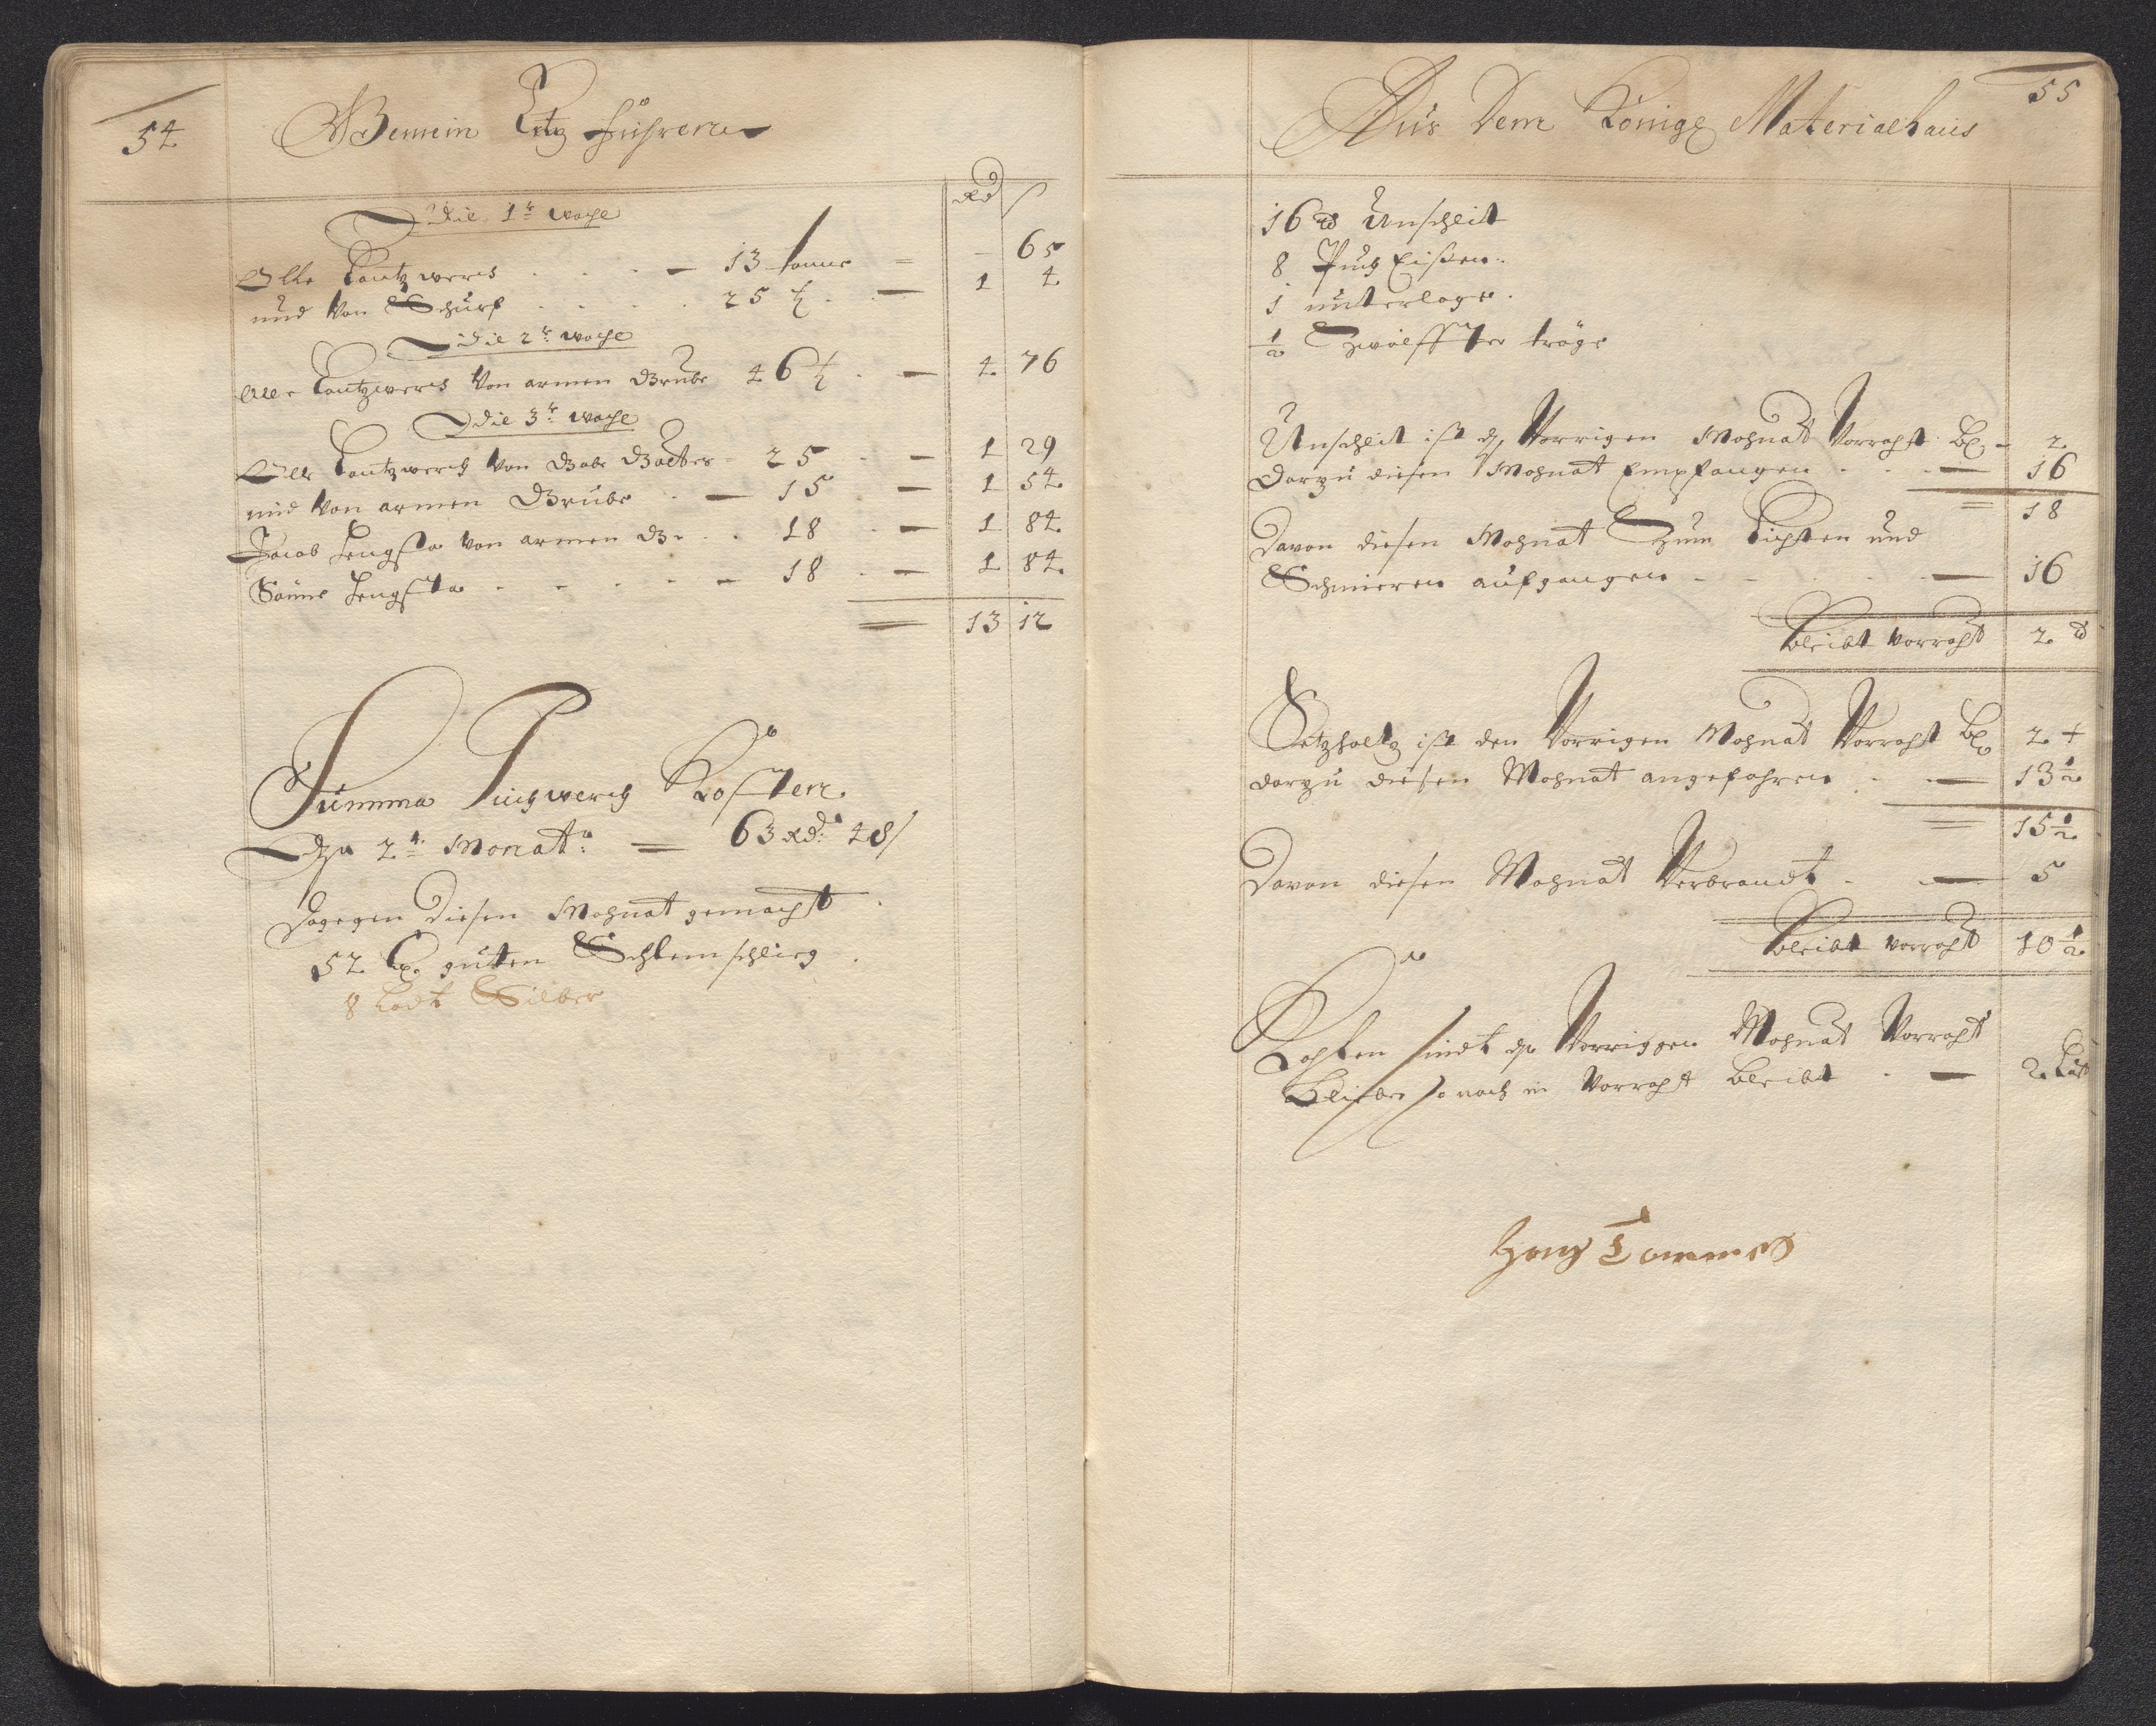 54
Gemein Ertz führen
Rd ß
Die 1te woche
Olle Lantzwerch - 13 tonne = - 65
und Von Schurf 25 ½ - 1 4
Die 2te woche
Olle Lantzwerch Von armen Grube 46 ½ - 4 76
Die 3te woche
Olle Lantzwerch Von 25 - 1 29
und Von armen Grube - 15 - 1 54
Jacob Lengsta Von armen Gr. 18 - 1 84
Lengsta - 18 - 1 84
13 12
Summa Puchwerch Kosten
2te Monat - 63 Rd: 48 ß
Dagegen Diesen Mohnat gemacht
52 guten Schlemschlieg
8 Lodt Silber
55
Aus Dem Königl Materialhaus
16 ℔ Unschleit
8 Puch Eisßen
1 unterlage
½ Zwölffter tröge
Unschleit ist Vorrigen Mohnat Vorraht Bl - 2
Darzu diesen Mohnat Empfangen - 16
18
Davon diesen Mohnat Zum Lichten und
Schmieren aufgangen - 16
bleibt Vorraht 2 ℔
Setzholtz ist den Vorrigen Mohnat Vorraht Bl 2
darzu diesen Mohnat angefahren - 13½
15½
Davon diesen Mohnat Verbrandt - 5
bleibt Vorraht 10½
Kohlen sindt Vorriggen Mohnat Vorraht
Blieben so noch in Vorraht bleibt - 2
Hans Tommes